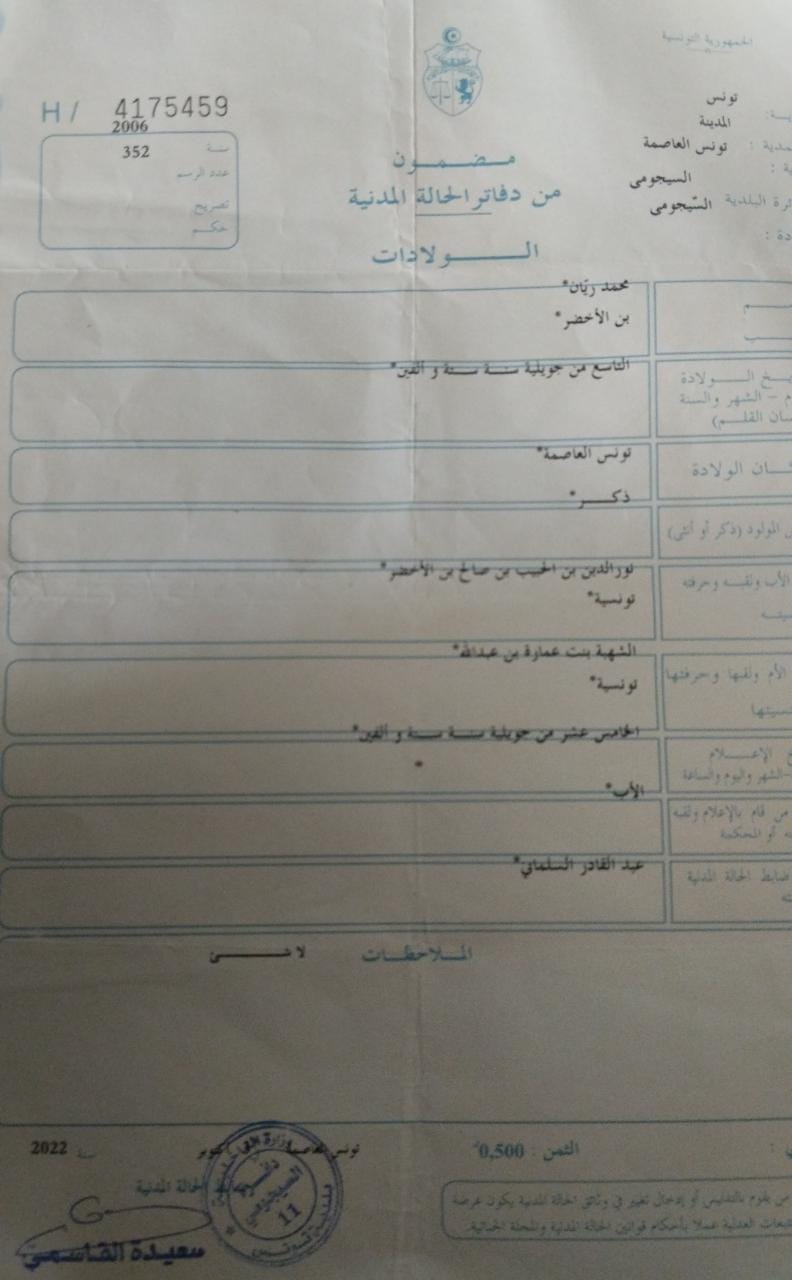 الجمهورية التونسية
تونس
المدينة
تونس العاصمة
السيجومي
السّيجومي
H / 4175459
سنة 2006
عدد الرسم 352
تصريح
حكم
مضمون
من دفاتر الحالة المدنية
الولادات
محمد ريّان*
بن الأخضر*
الولادة
التاسع من جويلية سنة ستة و ألفين*
– الشهر والسنة
القلم)
الولادة
تونس العاصمة*
ذكر*
المولود (ذكر أو أنثى)
الأب ولقبه وحرفته
نورالدين بن الحبيب بن صالح بن الأخضر*
تونسية*
الأم ولقبها وحرفتها
الشهبة بنت عمارة بن عبدالله*
تونسية*
الإعلام
الخامس عشر من جويلية سنة ستة و ألفين*
–الشهر واليوم والساعة
*
من قام بالإعلام ولقبه
الأب*
أو المحكمة
ضابط الحالة المدنية
عبد القادر السلماني*
الملاحظات
لا شئ
الثمن : 0,500
تونس العاصمة
سنة 2022
الحالة المدنية
دائرة
السيجومي
11
بلدية تونس
سعيدة القاسمي
من يقوم بالتفليس أو إدخال تغيير في وثائق الحالة المدنية يكون عرضة
العدلية عملا بأحكام قوانين الحالة المدنية والمجلة الجنائية.